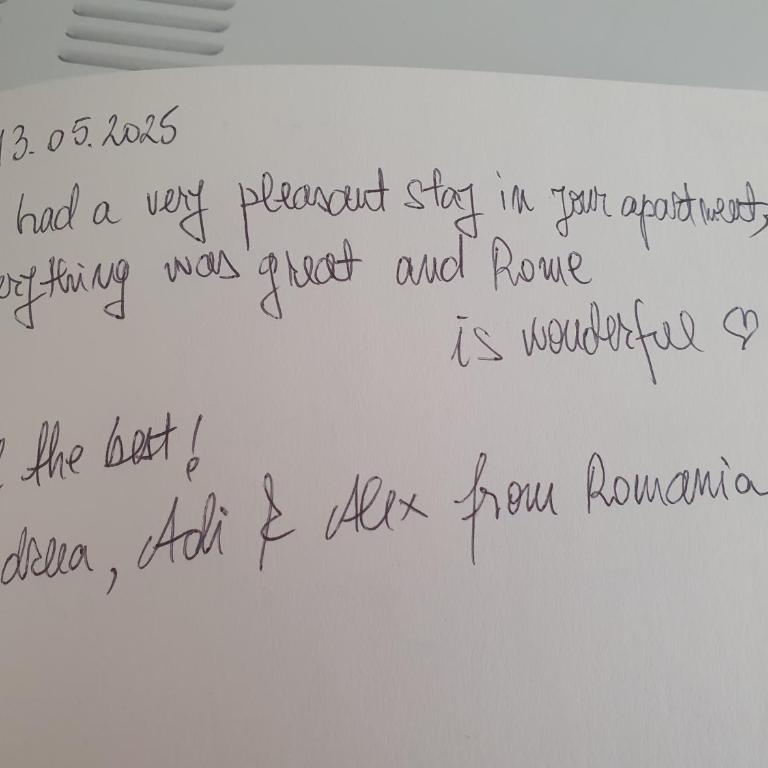 13.05.2025
had a very pleasant stay in your apartment,
erything was great and Rome
is wonderful ♡
the best!
dreea, Adi & Alex from Romania